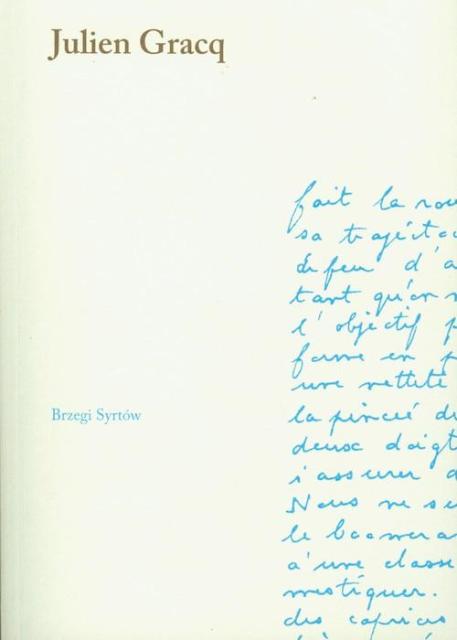 Julien Gracq
fait la rou
sa trajecto
d'a
tant qu'on n
l'objectif p
forme en p
une netteté
Brzegi Syrtów
la pincée de
deux doigt
s'assurer d
Nous ne se
le boomera
à une classe
mestiquer.
des caprices